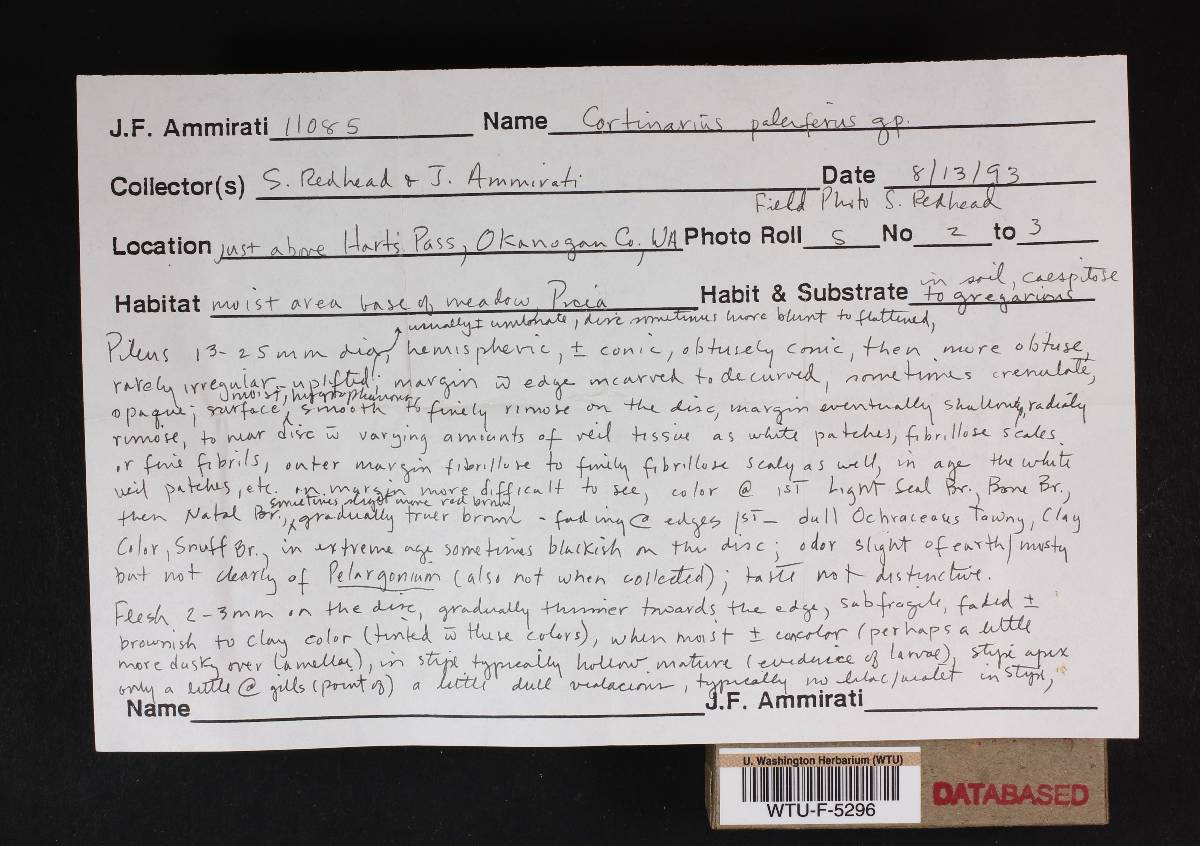 J.F. Ammirati 11085 Name Cortinarius paleiferus gp.
Collector(s) S. Redhead & J. Ammirati Date 8/13/93
Field Photo S. Redhead
Location just above Harts Pass, Okanogan Co., WA Photo Roll S No 2 to 3
Habitat moist area base of meadow, Picia Habit & Substrate in soil, caespitose
to gregarious
usually ± umbonate, disc sometimes more blunt to flattened,
Pileus 13-25mm dia, hemispheric, ± conic, obtusely conic, then more obtuse,
rarely irregular - uplifted; margin w̄ edge incurved to decurved, sometimes crenulate,
moist, hygrophanous
opaque; surface, smooth to finely rimose on the disc, margin eventually shallowly, radially
rimose, to near disc w̄ varying amounts of veil tissue as white patches, fibrillose scales
or fine fibrils, outer margin fibrillose to finely fibrillose scaly as well, in age the white
veil patches, etc. on margin more difficult to see, color @ 1ST Light Seal Br., Bone Br.,
sometimes slight more red brown,
then Natal Br., gradually truer brown - fading @ edges 1ST - dull Ochraceous Tawny, Clay
Color, Snuff Br., in extreme age sometimes blackish on the disc; odor slight of earth/musty
but not clearly of Pelargonium (also not when collected); taste not distinctive.
Flesh 2-3mm on the disc, gradually thinner towards the edge, subfragile, faded ±
brownish to clay color (tinted w̄ these colors), when moist ± concolor (perhaps a little
more dusky over lamellae), in stipe typically hollow mature (evidence of larvae), stipe apex
only a little @ gills (point of) a little dull violaceous, typically no lilac/violet in stipe,
Name J.F. Ammirati
U. Washington Herbarium (WTU)
WTU-F-5296
DATABASED